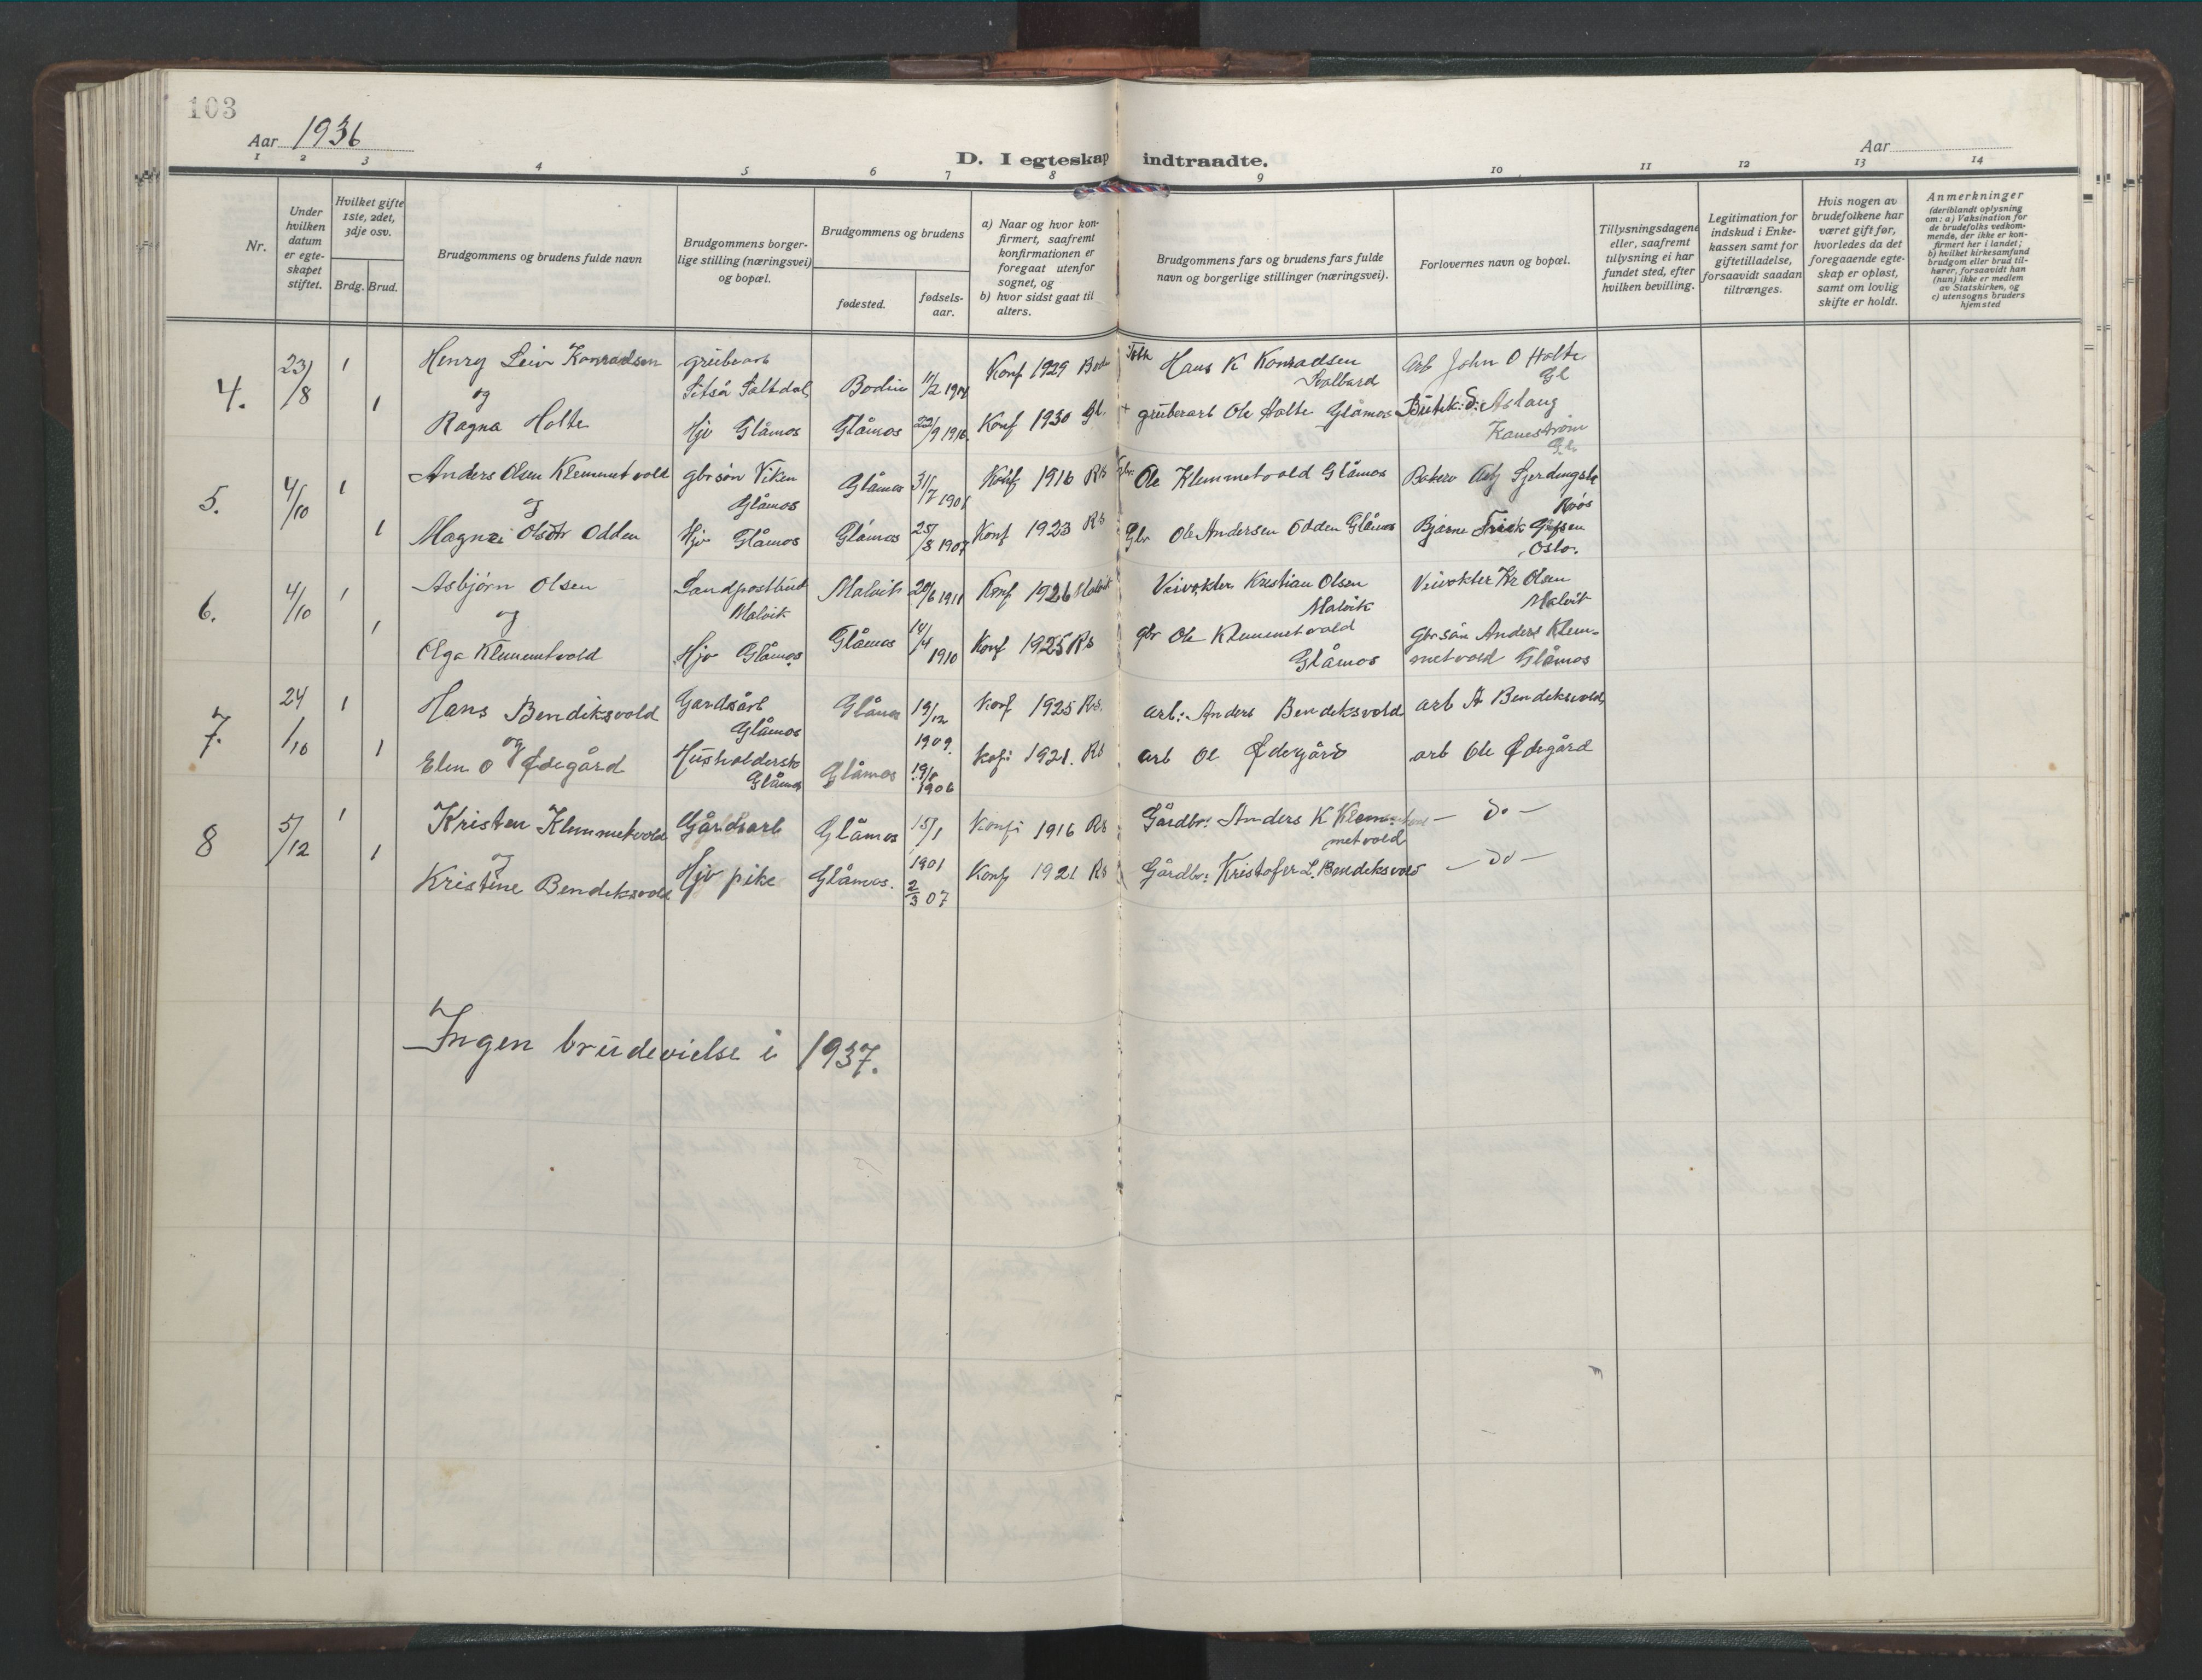 103
Aar 1936
D. I egteskap indtraadte.
Aar
1 2 3 4 5 6 7 8 9 10 11 12 13 14
Nr.
Under hvilken datum er egte-skapet stiftet.
Hvilket gifte 1ste, 2det, 3dje osv.
Brdg. Brud.
Brudgommens og brudens fulde navn
Brudgommens borger-lige stilling (næringsvei) og bopæl.
Brudgommens og brudens
fødested.
fødsels-aar.
a) Naar og hvor kon-firmert, saafremt konfirmationen er foregaat utenfor sognet, og
b) hvor sidst gaat til alters.
Brudgommens fars og brudens fars fulde navn og borgerlige stillinger (næringsvei).
Forlovernes navn og bopæl.
Tillysningsdagene eller, saafremt tillysning ei har fundet sted, efter hvilken bevilling.
Legitimation for indskud i Enke-kassen samt for giftetilladelse, forsaavidt saadan tiltrænges.
Hvis nogen av brudefolkene har været gift før, hvorledes da det foregaaende egte-skap er opløst, samt om lovlig skifte er holdt.
Anmerkninger (deriblandt oplysning om: a) Vaksination for de brudefolks vedkom-mende, der ikke er kon-firmert her i landet; b) hvilket kirkesamfund brudgom eller brud til-hører, forsaavidt han (hun) ikke er medlem av Statskirken, og c) utensogns bruders hjemsted
4. 23/8 1 Henry Leiv Konradsen grubearb Bodin 11/2 Konf 1929 Hans K Konradsen arb John O Holte
og Saltdal Svalbard Gl
1 Ragna Holte Hjv Glåmos Glåmos 22/9 1916 Konf 1930 Gl. + grubearb Ole Holte Glåmos Aslaug
Gl.
5. 4/10 1 Anders Olsen Klemmetvold gbrsøn Viken Glåmos 31/7 1901 Konf 1916 Rs Gbr. Ole Klemmetvold Glåmos
og Glåmos Røros
1 Olsdtr Odden Hjv Glåmos Glåmos 25/8 1907 Konf 1923 Rs Gbr Ole Andersen Odden Glåmos Bjarne
Oslo.
6. 4/10 1 Asbjørn Olsen Landpostbud Malvik 20/6 1911 Konf 1926 Malvik Veivokter Kristian Olsen Veivokter Kr Olsen
og Malvik Malvik Malvik
1 Olga Klemmetvold Hjv Glåmos Glåmos 14/4 1910 Konf 1925 Rs gbr Ole Klemmetvold gbrsøn Anders Klem-
Glåmos metvold Glåmos
7. 24/10 1 Hans Bendiksvold Gardsarb Glåmos 19/12 1909. Konf 1925 Rs. arb: Anders Bendiksvold arb A Bendiksvold
og Glåmos
1 Elen O Ødegård Husholderske Glåmos 1906 Kofi 1921. Rs arb Ole Ødegård arb Ole Ødegård
Glåmos
8 5/12 1 Kristen Klemmetvold Gårdsarb Glåmos 15/1 1901 Konfi 1916 Rs Gårdbr: Anders K Klem- — do —
og metvold
1 Kristine Bendiksvold Hjv pike Glåmos. 2/3 07 Konf 1921 Rs Gårdbr: Kristofer L. Bendiksvold — do —
Ingen brudevielse i 1937.